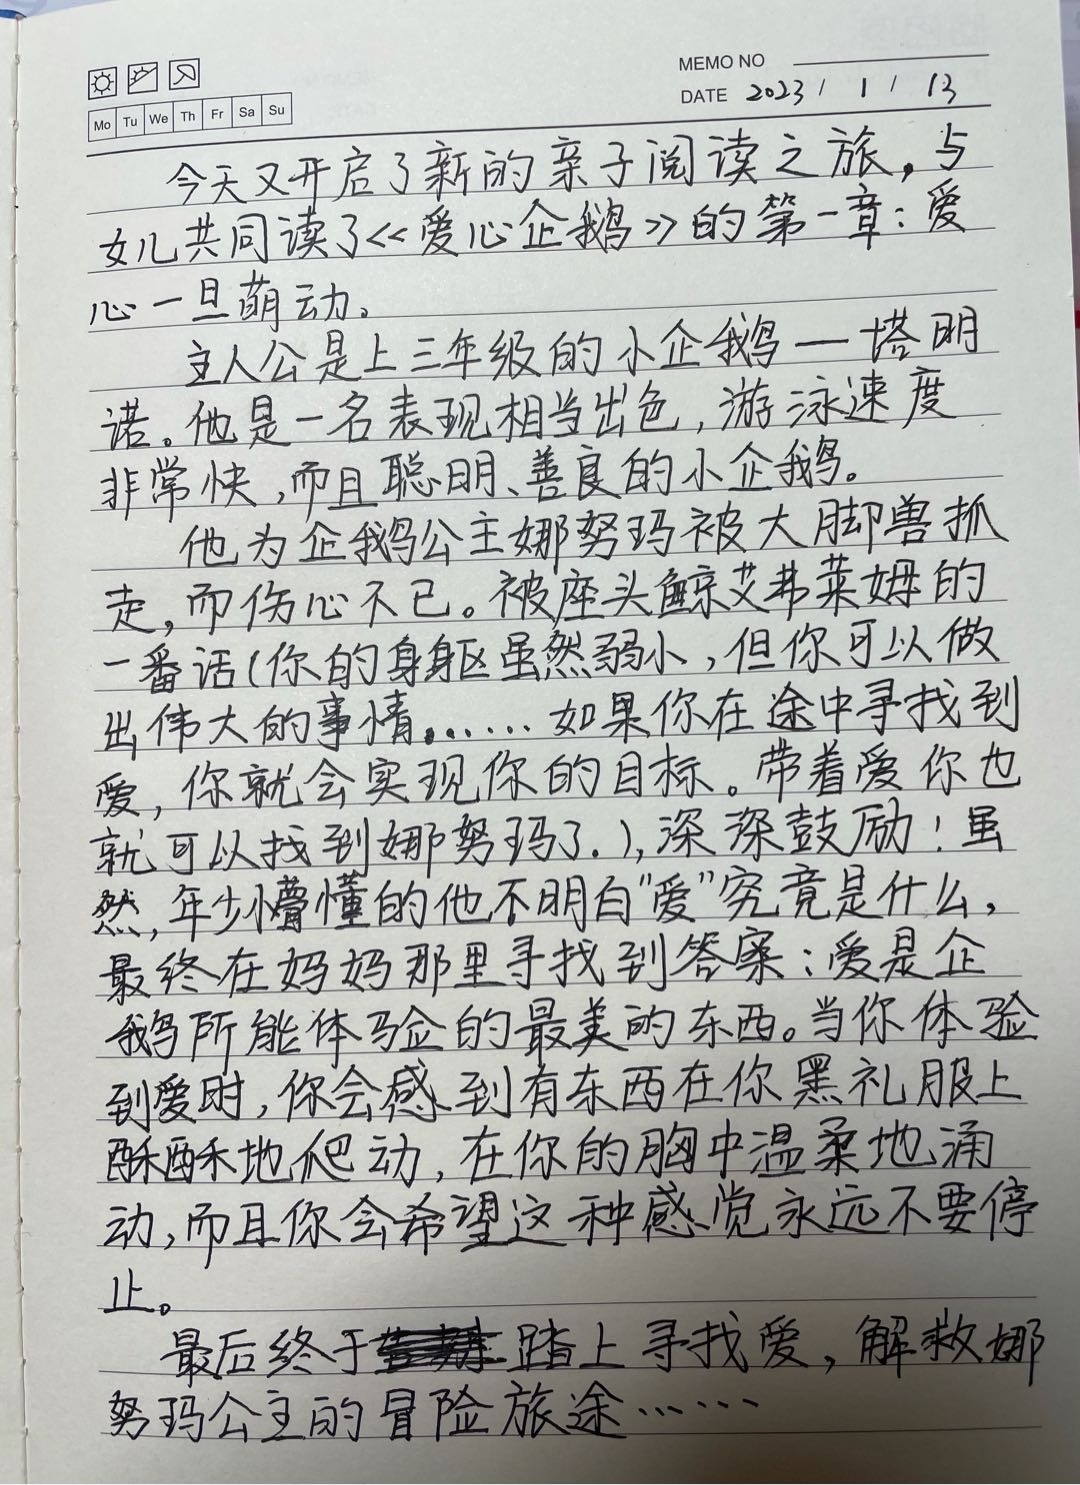 MEMO NO
DATE 2023 / 1 / 13
Mo Tu We Th Fr Sa Su
今天又开启了新的亲子阅读之旅，与
女儿共同读了《爱心企鹅》的第一章：爱
心一旦萌动。
主人公是上三年级的小企鹅—塔明
诺。他是一名表现相当出色，游泳速度
非常快，而且聪明、善良的小企鹅。
他为企鹅公主娜努玛被大脚兽抓
走，而伤心不已。被座头鲸艾弗莱姆的
一番话（你的身躯虽然弱小，但你可以做
出伟大的事情。……如果你在途中寻找到
爱，你就会实现你的目标。带着爱你也
就可以找到娜努玛了.），深深鼓励！虽
然，年少懵懂的他不明白“爱”究竟是什么，
最终在妈妈那里寻找到答案：爱是企
鹅所能体验的最美的东西。当你体验
到爱时，你会感到有东西在你黑礼服上
酥酥地爬动，在你的胸中温柔地涌
动，而且你会希望这种感觉永远不要停
止。
最后终于踏上寻找爱，解救娜
努玛公主的冒险旅途……